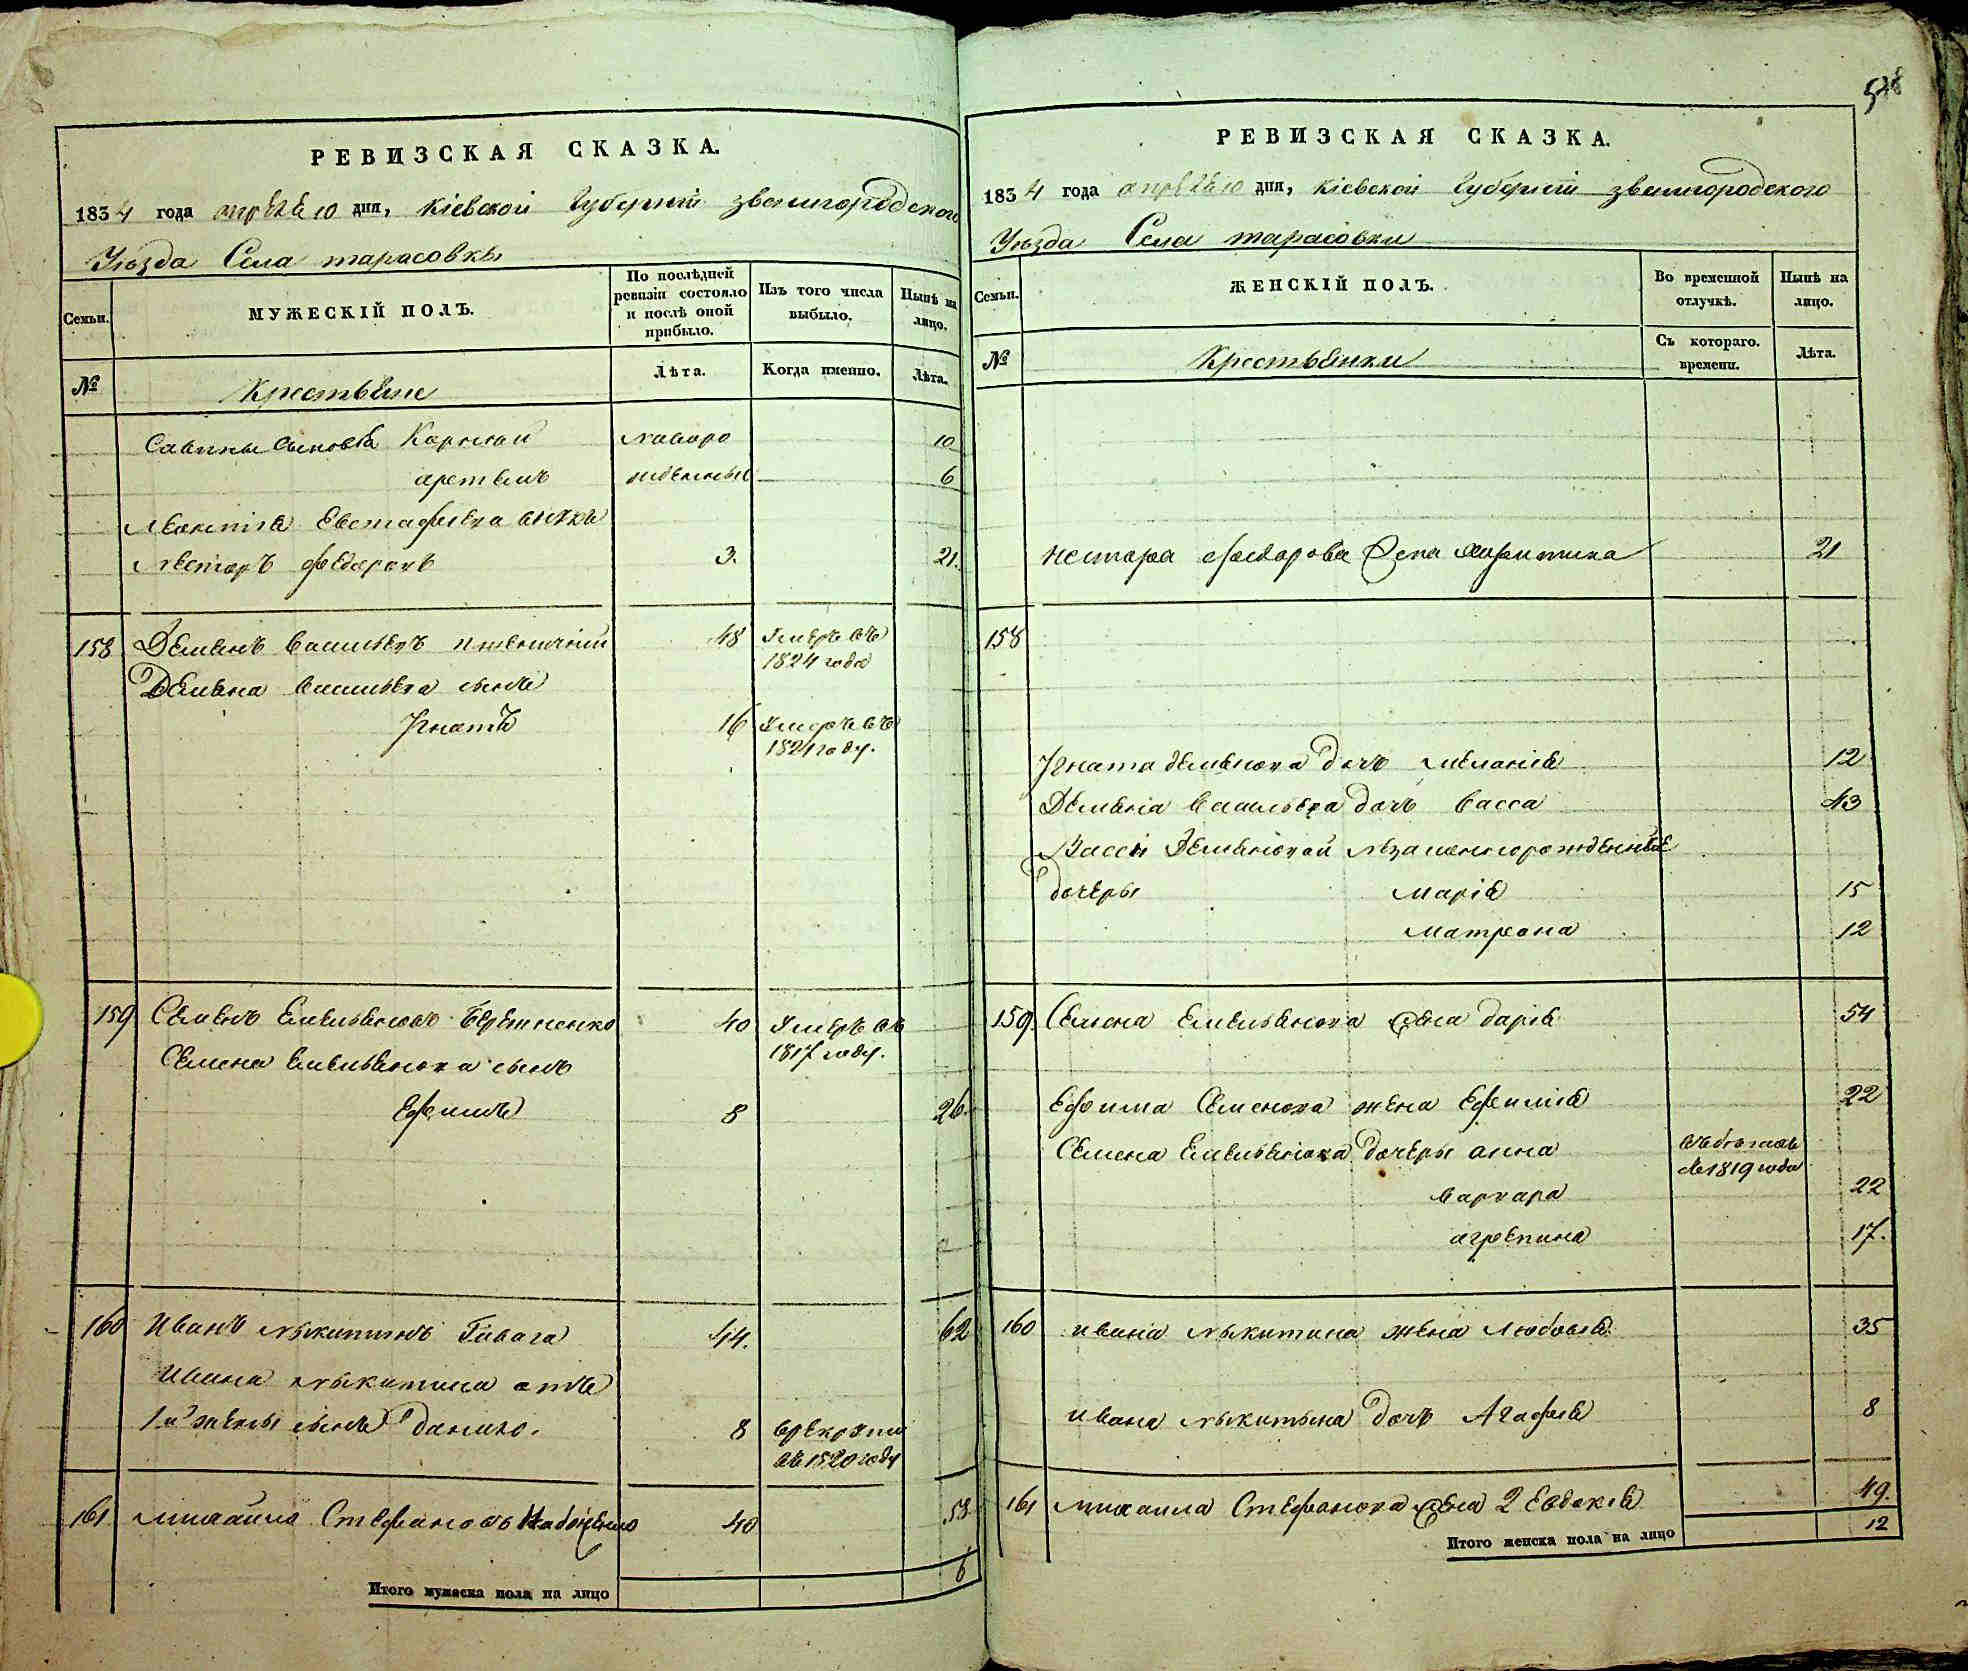 РЕВИЗСКАЯ СКАЗКА.
1834 года апреля 10 дня, Кіевской Губерніи звенигородского
Уѣзда Села тарасовки
Семьи.
МУЖЕСКІЙ ПОЛЪ.
По послѣдней ревизіи состояло и послѣ оной прибыло.
Изъ того числа выбыло.
Нынѣ на лицо.
№
Крестьяне
Лѣта.
Когда именно.
Лѣта.
Савины сыновья новоро 10
аретемъ жденные 6
Леонтія Евстафиева внукъ
Несторъ федоровъ 3. 21.
158 Деменъ Васильевъ пшеничній 48 Умеръ въ 1824 года
Демена Васильева сынъ
Игнатъ 16 Умеръ въ 1821 году.
159 Семенъ Емельяновъ 40 Умеръ въ 1817 году.
Семена Емельянова сынъ
Ефимъ 8 26.
160 Иванъ Никитинъ 44. 62
Ивана Никитина отъ
1й жены сынъ Данило. 8 врекруты въ 1820 году
161 Михайло Стефановъ 40 58
Итого мужеска пола на лицо 6
РЕВИЗСКАЯ СКАЗКА.
1834 года апреля 10 дня, Кіевской Губерніи звенигородского
Уѣзда Села тарасовки
Семьи.
ЖЕНСКІЙ ПОЛЪ.
Во временной отлучкѣ.
Нынѣ на лицо.
№
Крестьянки
Съ котораго. времени.
Лѣта.
Нестора Федорова жена 21
158
Игната деменова дочъ меланія 12
Деменіа Васильева дочъ Васса 43
Вассы Деменовой незаконнорожденные
дочеры марія 15
матрона 12
159 Семена Емельянова жена дарія 54
Ефима Семенова жена Ефимія 22
Семена Емельянова дочеры анна въ бегахъ съ 1819 года
варвара 22
агрепина 17.
160 ивана Никитина жена Любовія 35
ивана Никитина дочъ Агафія 8
161 михаила Стефанова жена 2 Евдокія 49.
Итого женска пола на лицо 12